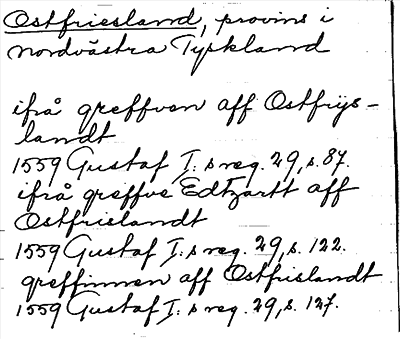 Ostfriesland, provins i
nordvästra Tyskland
ifrå greffven aff Ostfrijs-
landt
1559 Gustaf I:s reg. 29, s. 87.
ifrå greffve Edtzartt aff
Ostfrislandt
1559 Gustaf I:s reg. 29, s. 122.
greffinnen aff Ostfrislandt
1559 Gustaf I:s reg. 29, s. 127.